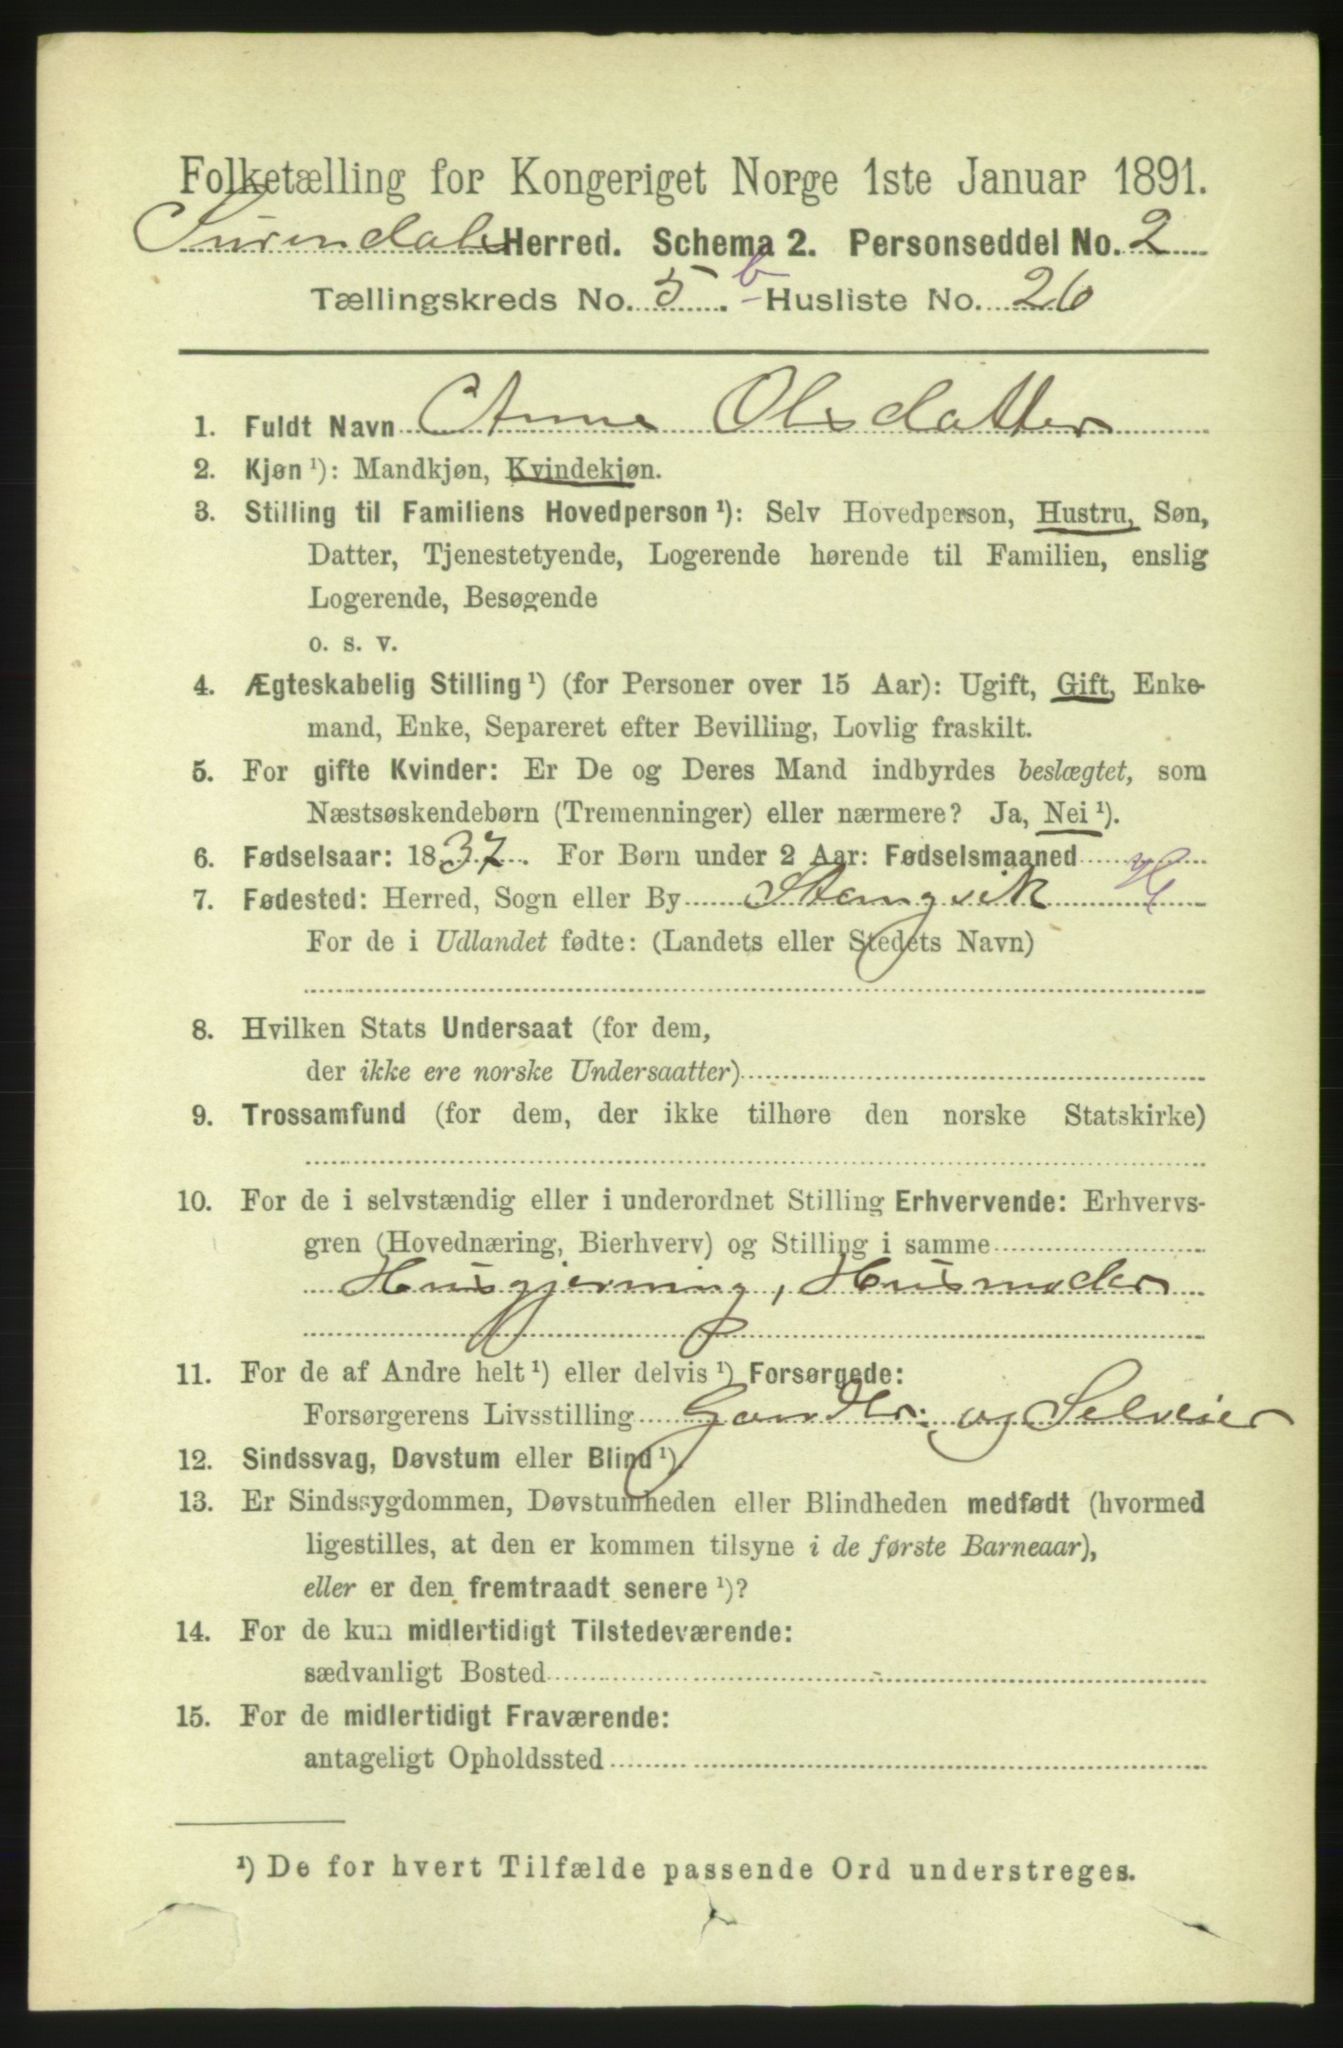 Folketælling for Kongeriget Norge 1ste Januar 1891.
Surendals Herred. Schema 2. Personseddel No. 2
Tællingskreds No. 5. b Husliste No. 26
1. Fuldt Navn Anne Olsdatter
2. Kjøn ¹): Mandkjøn, Kvindekjøn.
3. Stilling til Familiens Hovedperson ¹): Selv Hovedperson, Hustru, Søn,
Datter, Tjenestetyende, Logerende hørende til Familien, enslig
Logerende, Besøgende
o. s. v.
4. Ægteskabelig Stilling ¹) (for Personer over 15 Aar): Ugift, Gift, Enke-
mand, Enke, Separeret efter Bevilling, Lovlig fraskilt.
5. For gifte Kvinder: Er De og Deres Mand indbyrdes beslægtet, som
Næstsøskendebørn (Tremenninger) eller nærmere? Ja, Nei ¹).
6. Fødselsaar: 1837. For Børn under 2 Aar: Fødselsmaaned
7. Fødested: Herred, Sogn eller By Stangvik
For de i Udlandet fødte: (Landets eller Stedets Navn)
8. Hvilken Stats Undersaat (for dem,
der ikke ere norske Undersaatter)
9. Trossamfund (for dem, der ikke tilhøre den norske Statskirke)
10. For de i selvstændig eller i underordnet Stilling Erhvervende: Erhvervs-
gren (Hovednæring, Bierhverv) og Stilling i samme
Husgjerning, Husmoder
11. For de af Andre helt ¹) eller delvis ¹) Forsørgede:
Forsørgerens Livsstilling og Selveier
12. Sindssvag, Døvstum eller Blind ¹).
13. Er Sindssygdommen, Døvstumheden eller Blindheden medfødt (hvormed
ligestilles, at den er kommen tilsyne i de første Barneaar),
eller er den fremtraadt senere ¹)?
14. For de kun midlertidigt Tilstedeværende:
sædvanligt Bosted
15. For de midlertidigt Fraværende:
antageligt Opholdssted
¹) De for hvert Tilfælde passende Ord understreges.